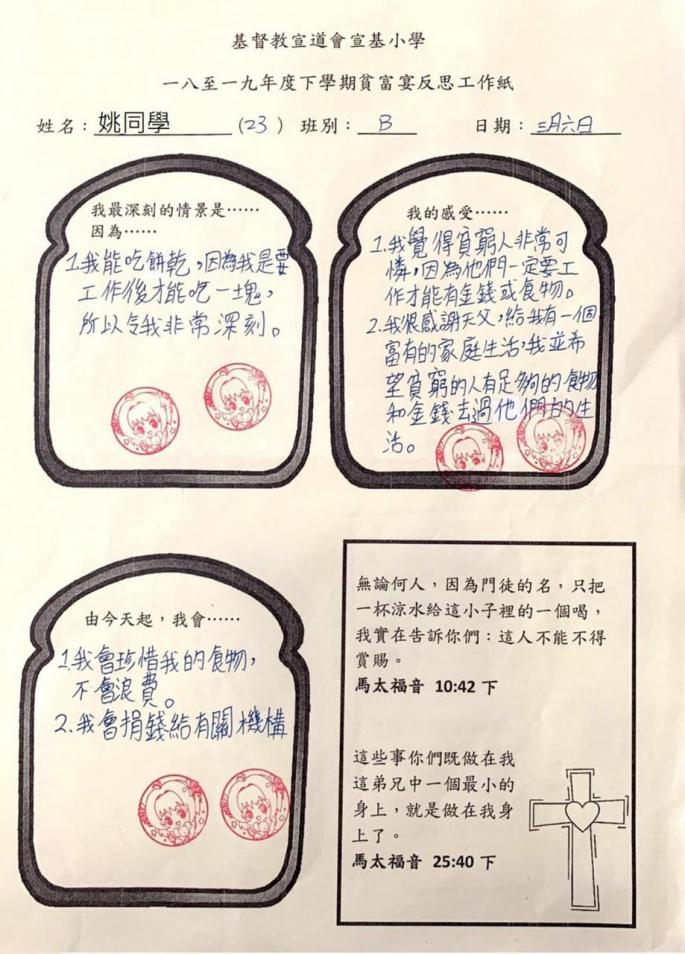 基督教宣道會宣基小學
一八至一九年度下學期貧富宴反思工作紙
姓名：姚同學 (23) 班別：B 日期：三月六日
我最深刻的情景是……
因為……
1.我能吃餅乾，因為我是要
工作後才能吃一塊，
所以令我非常深刻。
我的感受……
1.我覺得貧窮人非常可
憐，因為他們一定要工
作才能有金錢或食物。
2.我很感謝天父，給我有一個
富有的家庭生活，我並希
望貧窮的人有足夠的食物
和金錢去過他們的生
活。
由今天起，我會……
1.我會珍惜我的食物，
不會浪費。
2.我會捐錢給有關機構
無論何人，因為門徒的名，只把
一杯涼水給這小子裡的一個喝，
我實在告訴你們：這人不能不得
賞賜。
馬太福音 10:42 下
這些事你們既做在我
這弟兄中一個最小的
身上，就是做在我身
上了。
馬太福音 25:40 下